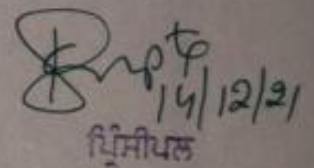 14/12/21
ਪ੍ਰਿੰਸੀਪਲ